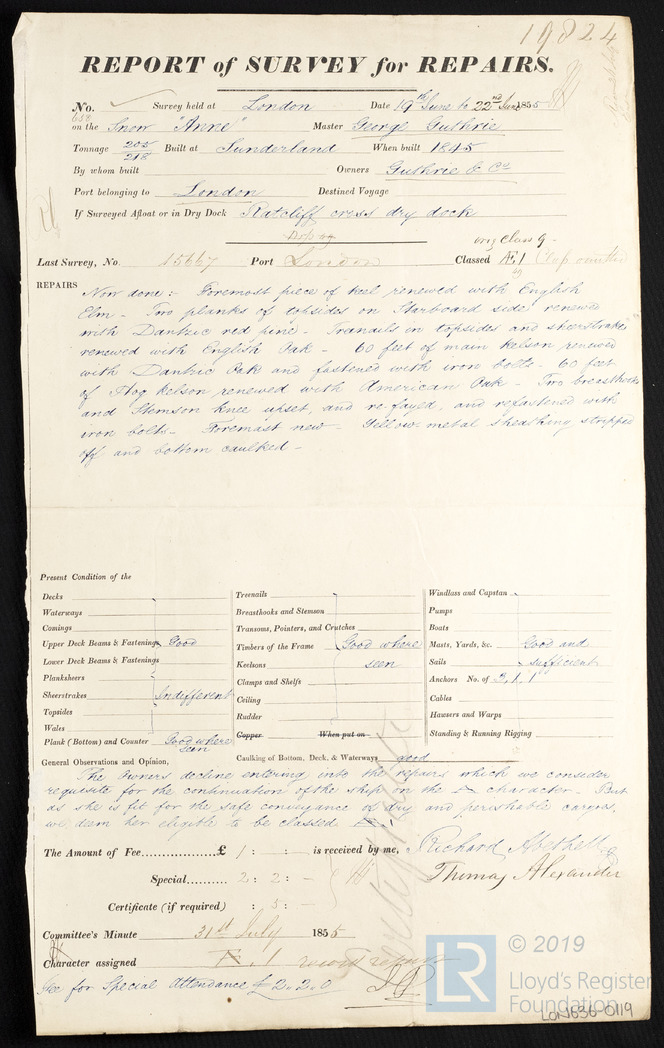 19824
REPORT of SURVEY for REPAIRS.
No. Survey held at London Date 19th June to 22nd June 1855
658
on the Snow "Anne" Master George Guthrie
Tonnage 205/218 Built at Sunderland When built 1845
By whom built Owners Guthrie & Co
Port belonging to London Destined Voyage
If Surveyed Afloat or in Dry Dock Ratcliff cross dry dock
orig Class 9
Last Survey, No. 15667 Port London Classed Æ1 (Top omitted
REPAIRS
Now done:- Foremost piece of keel renewed with English
Elm - Two planks of topsides on Starboard side renewed
with Dantzic red pine - Tranails in topsides and sheerstrakes
renewed with English Oak - 60 feet of main kelson renewed
with Dantzic Oak and fastened with iron bolts - 60 feet
of Hog kelson renewed with American Oak - Two breasthooks
and Stemson knee upset, and re-fayed, and refastened with
iron bolts - Foremast new - Yellow metal sheathing stripped
off and bottom caulked -
Present Condition of the
Decks
Waterways
Comings
Upper Deck Beams & Fastenings Good
Lower Deck Beams & Fastenings
Planksheers
Sheerstrakes Indifferent
Topsides
Wales
Plank (Bottom) and Counter Good where seen
Treenails
Breasthooks and Stemson
Transoms, Pointers, and Crutches
Timbers of the Frame Good where
Keelsons seen
Clamps and Shelfs
Ceiling
Rudder
Copper When put on
Caulking of Bottom, Deck, & Waterways good
Windlass and Capstan
Pumps
Boats
Masts, Yards, &c. Good and
Sails sufficient
Anchors No. of 3, 1, 1
Cables
Hawsers and Warps
Standing & Running Rigging
General Observations and Opinion,
The Owners decline entering into the repairs which we consider
requisite for the continuation of the ship on the A character - But
as she is fit for the safe conveyance of dry and perishable cargoes,
we deem her eligible to be classed Æ1
The Amount of Fee £ 1 : : is received by me, Richard Abethell
Special 2 : 2 : - Thomas Alexander
Certificate (if required) : 5 : -
Committee's Minute 31st July 1855
Character assigned Æ.1
Fee for Special Attendance £2.2.0
LR
© 2019
Lloyd's Register
Foundation
LON636-0119